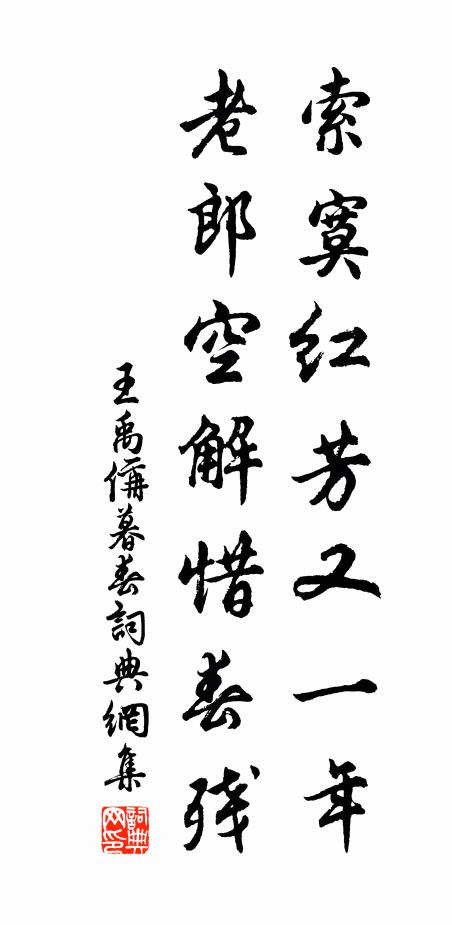 索寞红芳又一年
老郎空解惜春残
王禹偁暮春詞典網集
詞典网印